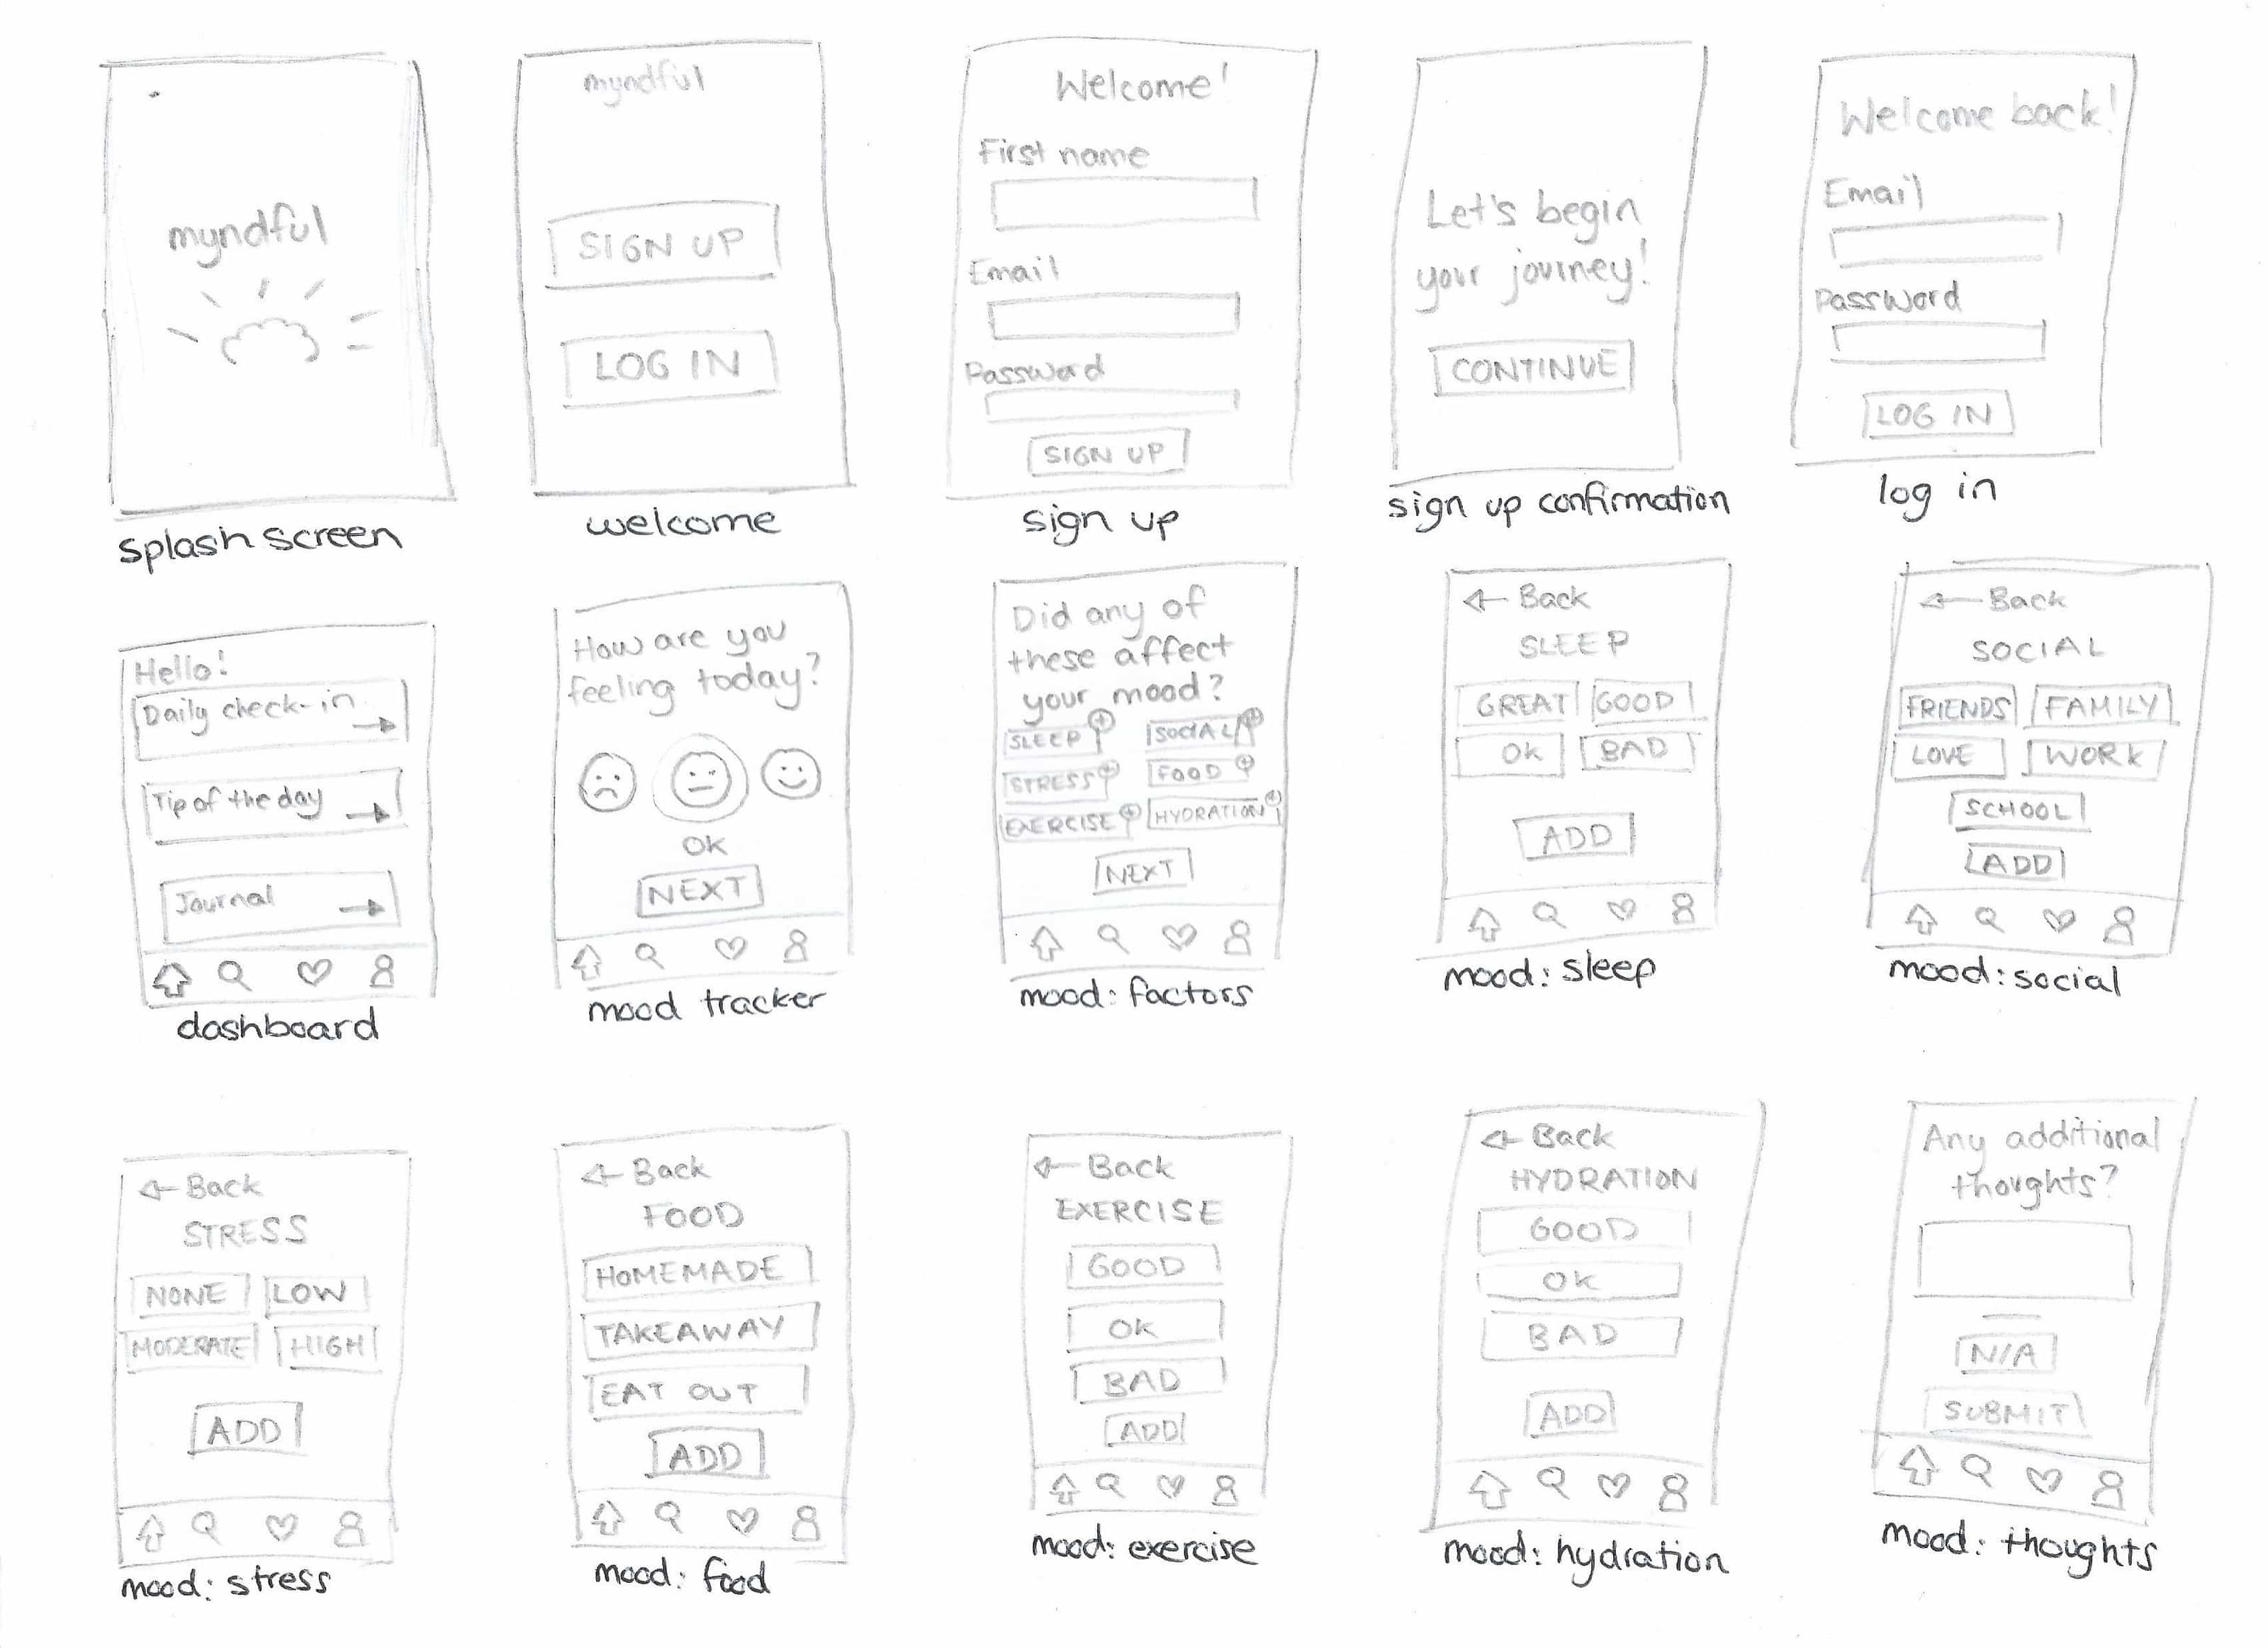 myndful
splash screen
myndful
SIGN UP
LOG IN
welcome
Welcome!
First name
Email
Password
SIGN UP
sign up
Let's begin
your journey!
CONTINUE
sign up confirmation
Welcome back!
Email
Password
LOG IN
log in
Hello!
Daily check-in
Tip of the day
Journal
dashboard
How are you
feeling today?
OK
NEXT
mood tracker
Did any of
these affect
your mood?
SLEEP SOCIAL
STRESS FOOD
EXERCISE HYDRATION
NEXT
mood: factors
Back
SLEEP
GREAT GOOD
OK BAD
ADD
mood: sleep
Back
SOCIAL
FRIENDS FAMILY
LOVE WORK
SCHOOL
ADD
mood: social
Back
STRESS
NONE LOW
MODERATE HIGH
ADD
mood: stress
Back
FOOD
HOMEMADE
TAKEAWAY
EAT OUT
ADD
mood: food
Back
EXERCISE
GOOD
OK
BAD
ADD
mood: exercise
Back
HYDRATION
GOOD
OK
BAD
ADD
mood: hydration
Any additional
thoughts?
N/A
SUBMIT
mood: thoughts